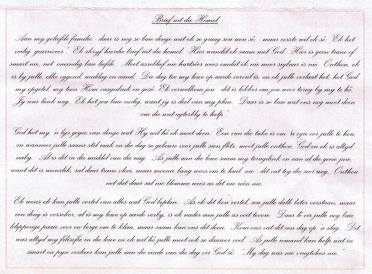 Brief uit die Hemel
Aan my geliefde familie, daar is nog so baie dinge wat ek so graag sou sê, maar eerste wil ek sê. Ek het
veilig gearriveer. Ek skryf hierdie brief uit die hemel. Hier wandel ek saam met God. Hier is geen trane of
smart nie, net ewendig liefde. Moet asseblief nie hartseer wees omdat ek nie meer sigbaar is nie. Onthou, ek
is by julle, elke oggend, middag en aand. Die dag toe my lewe op aarde verval is, en ek julle verlaat het, het God
my opgetel, my teen Hom vasgedruk en gesê: Ek verwelkom jou, dit is lekker om jou weer terug by my te hê.
Jy was lank weg. Ek het jou baie nodig, want jy is deel van my plan. Daar is so baie wat ons nog moet doen
om die wat agterbly te help.
God het my 'n lys gegee van dinge wat Hy wil hê ek moet doen. Een van die take is om 'n ogie oor julle te hou,
en wanneer julle saans stil raak en die dag se gebeure oor julle san flits, moet julle onthou, God en ek is altyd
naby. As julle aan die lewe saam my terugdink en aan al die goeie jare,
want dit is menslik, sal daar trane vloei, maar moenie bang wees om te huil nie, dit sal vir die seer sorg. Onthou
net dat daar sal nie blomme wees as dit nie reën nie.
Ek wens ek kan julle vertel van alles wat God beplan. As ek dit kon vertel, sou julle dalk beter verstaan, maar
van ding is verseker, al is my lewe op aarde verby, is ek nader aan julle as ooit tevore. Daar lê vir julle nog baie
klipperige paaie voor en berge om te klim, maar saam kan ons dit doen. Kom ons vat dit een dag op 'n slag. Dit
was altyd my filosofie in die lewe en ek wil hê julle moet ook so daaroor voel. As julle iemand kan help wat in
smart en pyn verkeer kan julle aan die einde van die dag vir God sê: "My dag was nie vrugteloos nie."